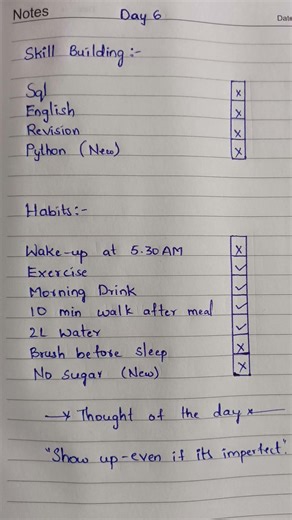 Notes
Day 6
Date
Skill Building :-
Sql x
English x
Revision x
Python (New) x
Habits:-
Wake-up at 5.30 AM x
Exercise ✓
Morning Drink ✓
10 min walk after meal ✓
2L Water ✓
Brush before sleep x
No sugar (New) x
Thought of the day
"Show up-even if its imperfect".